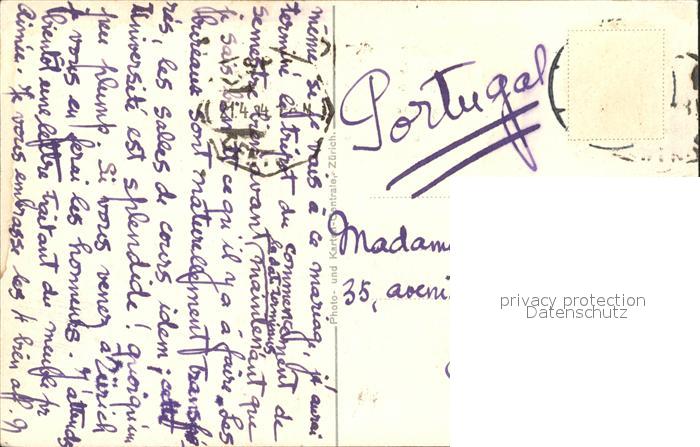 même si je vais à ce mariage, j'aurai
terminé et tiré du commencement de
la dat terminus
semestre d'ici avant, maintenant que
je sais ce qu'il y a à faire. Les
bureaux sont naturellement transfé-
rés, les salles de cours idem, cette
Université est splendide! quoiqu'un
peu plump. Si vous venez à Zürich
je vous en ferai les honneurs. J'attends
bientôt une lettre traitant du meuble pr
Aimée. Je vous embrasse les 4 bien aff.
21.4.
Photo- und Karten-Centrale, Zürich
Portugal
Madam
35, aveni
privacy protection
Datenschutz